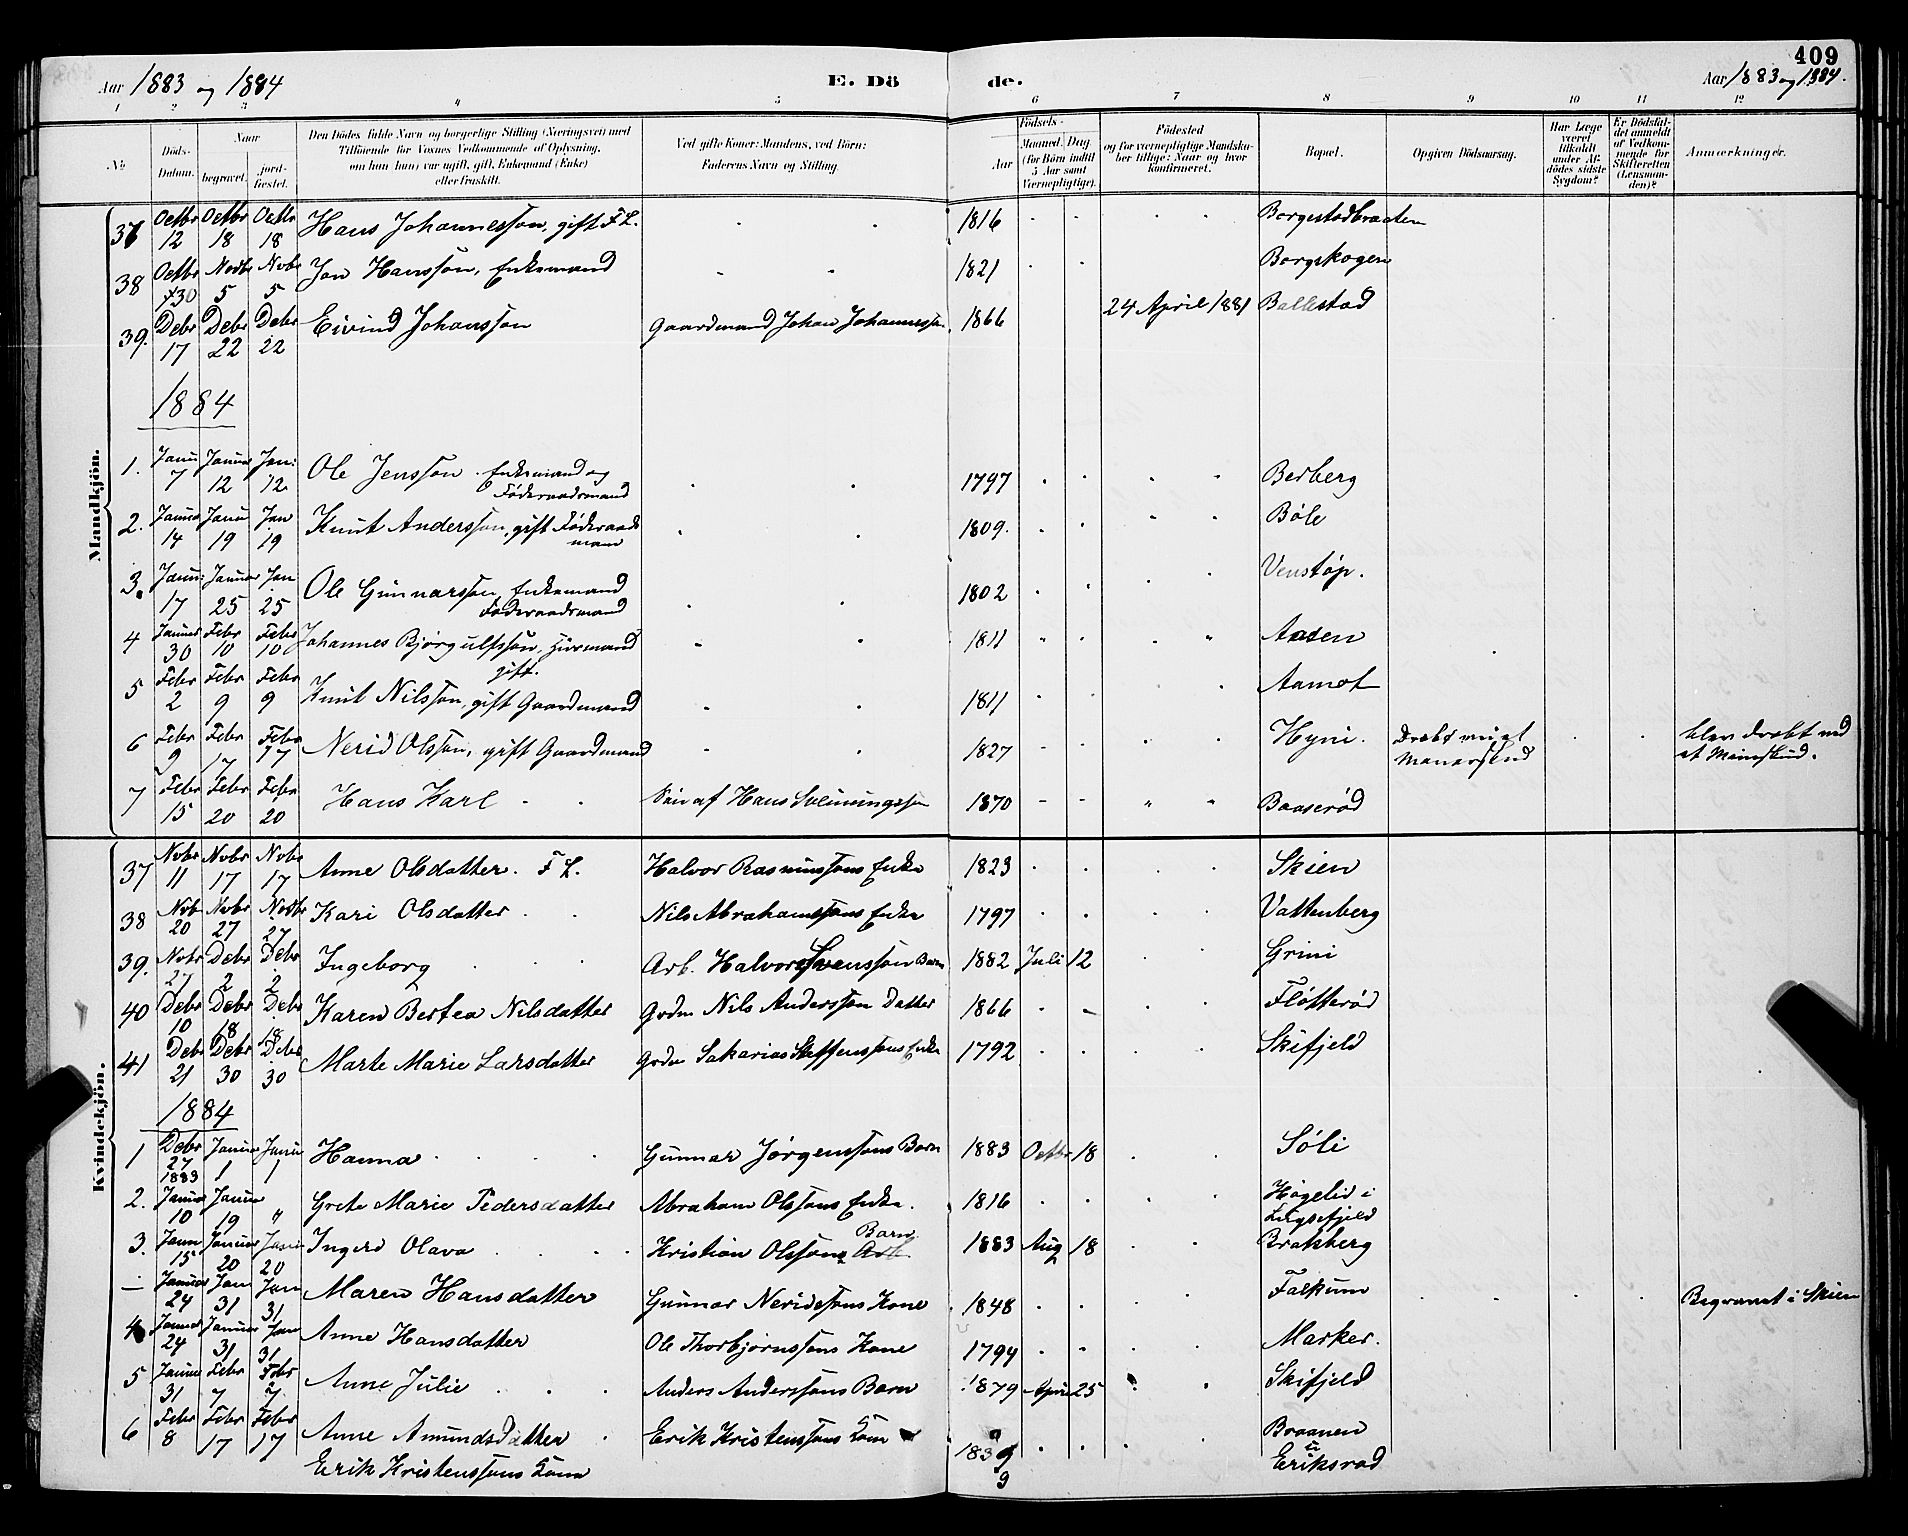 409
Aar 1883 og 1884 E. Dö de. Aar 1883 og 1884.
1 2 3 4 5 6 7 8 9 10 11 12
No Döds-Datum. Naar begravet. jord-fæstet. Den Dödes fulde Navn og borgerlige Stilling (Næringsvei) med Tilföiende for Voxnes Vedkommende af Oplysning, om han (hun) var ugift, gift, Enkemand (Enke) eller fraskilt. Ved gifte Koner: Mandens, ved Börn: Faderens Navn og Stilling. Födsels- Aar Maaned. Dag (for Börn indtil 5 Aar samt Værnepligtige). Födested og for værnepligtige Mandskaber tillige: Naar og hvor konfirmeret. Bopæl. Opgiven Dödsaarsag. Har Læge været tilkaldt under Afdödes sidste Sygdom? Er Dödsfaldet anmeldt af Vedkommende for Skifteretten (Lensmanden)? Anmærkninger.
Mandkjön.
37 Octbr 12 Octbr 18 Octbr 18 Hans Johannesson, gift F L. 1816 Borgestadbraaten
38 Octbr 30 Novbr 5 Nvbr 5 Jon Hansson, Enkemand 1821 Borgskogen
39. Debr 17 Debr 22 Debr 22 Eivind Johansson Gaardmand Johan Johannesson 1866 24 April 1881 Ballestad
1884
1. Janu 7 Januar 12 Jan 12 Ole Jensson Enkemand og Föderaadsmand 1797 Berberg
2. Janua 14 Janu 19 Jan 19 Knut Andersson, gift Föderaadsmann 1809. Bøle
3. Janu 17 Januar 25 Jan 25 Ole Gunnarsson Enkemand Föderaadsmand 1802 Venstøp.
4 Januar 30 Febr 10 Febr 10 Johannes Bjørgulfsson, gift. 1811 Aasen
5 Febr 2 Febr 9 Febr 9 Knut Nilsson, gift Gaardmand 1811 Aamot
6 Febr 9 Febr 17 Febr 17 Nerid Olsson, gift Gaardmand 1827 Hyni. Dræbt blev dræbt ved et Mineskud.
7 Febr 15 Febr 20 Febr 20 Hans Karl Søn af Hans Sveinungsson 1870 Baaserød
Kvindekjön.
37 Nvbr 11 Nvbr 17 Nvbr 17 Anne Olsdatter. F L. Halvor Rasmussons Enke 1823 Skien
38 Nvb 20 Nvbr 27 Novbr 27 Kari Olsdatter Nils Abrahamssons Enke 1797 Vattenberg
39. Nvbr 27 Debr 2 Debr 2 Ingeborg Arb. Halvor Svensson Barn 1882 Juli 12 Grini
40 Debr 10 Debr 18 Debr 18 Karen Bertea Nilsdatter Grdm Nils Andersson Datter 1866 Fløtterød
41 Debr 21 Debr 30 Debr 30 Marte Marie Larsdatter Grdm Sakarias Steffenssons Enke 1792 Skifjeld
1884
1 Debr 27 1883 Januar 1 Janu 1 Hanna Gunnar Jørgenssons Barn 1883 Octbr 18 Søli
2. Januar 10 Januar 19 " Grete Marie Pedersdatter Abraham Olssons Enke. 1816 Høgelid i Luysefjeld
3. Janu 15 Januar 20 Janu 20 Ingerd Olava Kristian Olssons Barn Arb 1883 Aug 18 Brakberg
– Januar 24 Jan 31 Jan 31 Maren Hansdatter Gunnar Neridssons Kone 1848 Falkum Begravet i Skien
4 Januar 24 Januar 31 Jan 31 Anne Hansdatter Ole Thorbjørnssons Kone 1794 Marker.
5 Januar 31 Febr 7 Febr 7 Anne Julie Anders Anderssons Barn 1879 April 25 Skifjeld
6 Febr 8 Febr 17 Febr 17 Anne Amundsdatter Erik Kristenssons Kone 1839 Braanen u
Erik Kristenssons Kone 9 Eriksrød